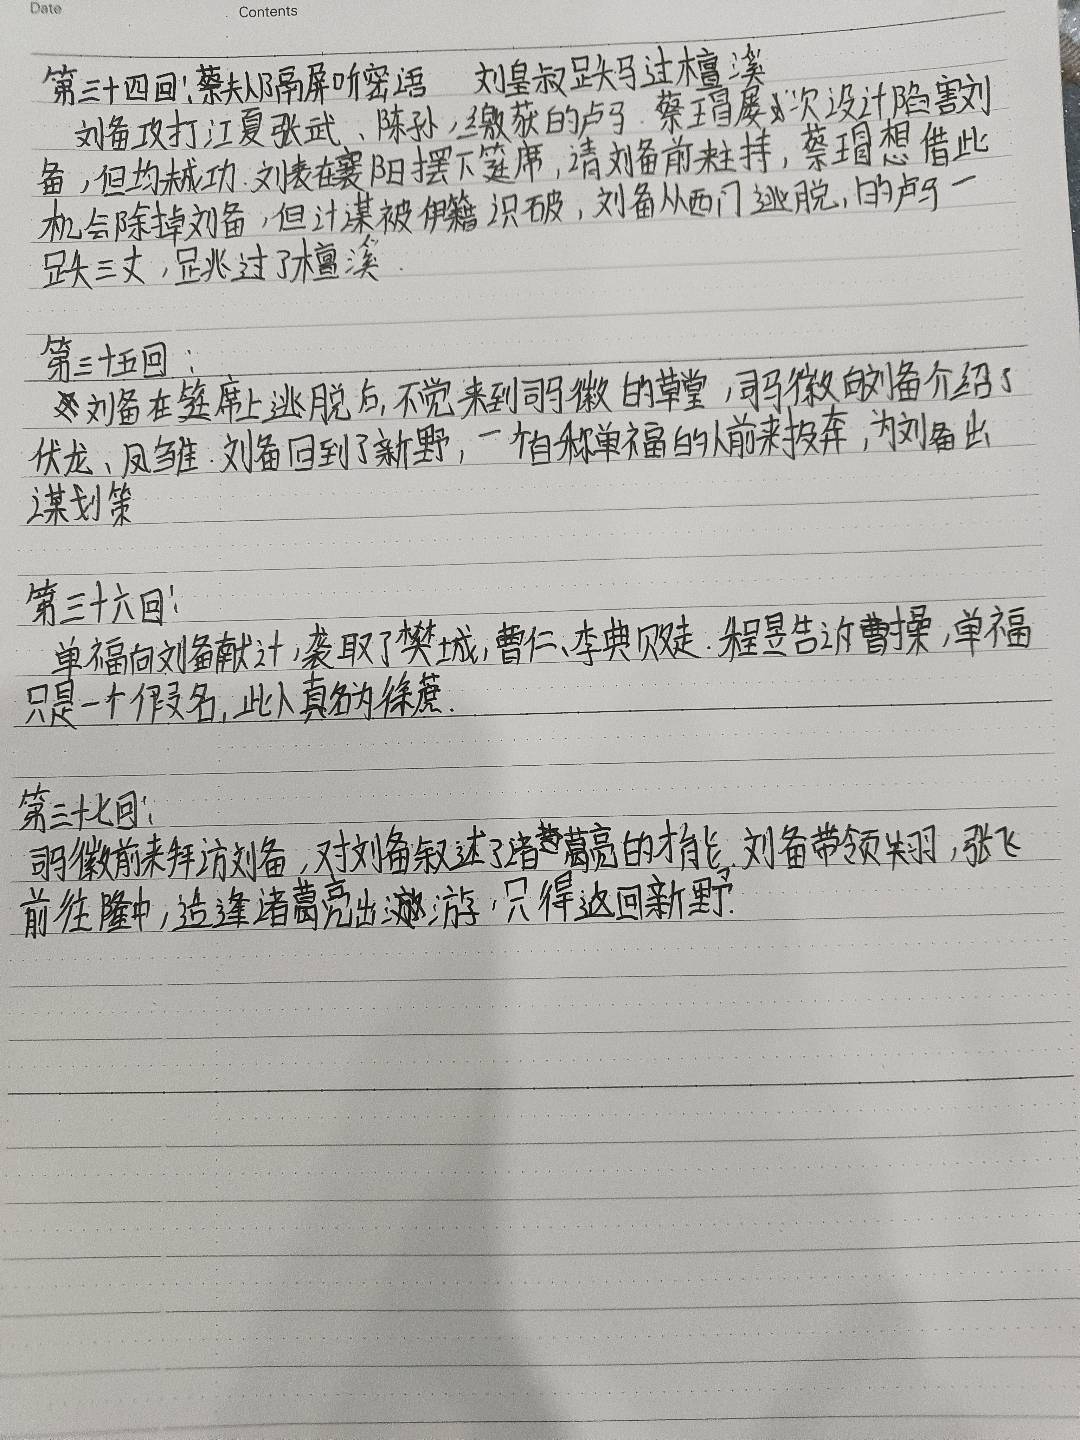 Date
Contents
第三十四回：蔡夫人隔屏听密语 刘皇叔跃马过檀溪
刘备攻打江夏张武、陈孙，缴获的卢马.蔡瑁屡次设计陷害刘
备，但均未成功.刘表在襄阳摆下筵席，请刘备前来主持，蔡瑁想借此
机会除掉刘备，但计谋被伊籍识破，刘备从西门逃脱，的卢马一
跃三丈，跳过了檀溪.
第三十五回：
刘备在筵席上逃脱后，不觉来到司马徽的草堂，司马徽向刘备介绍了
伏龙、凤雏.刘备回到了新野，一个自称单福的人前来投奔，为刘备出
谋划策
第三十六回：
单福向刘备献计，袭取了樊城，曹仁、李典败走.程昱告诉曹操，单福
只是一个假名，此人真名为徐蔗.
第三十七回：
司马徽前来拜访刘备，对刘备叙述了诸葛亮的才能.刘备带领关羽，张飞
前往隆中，造逢诸葛亮出游，只得返回新野.